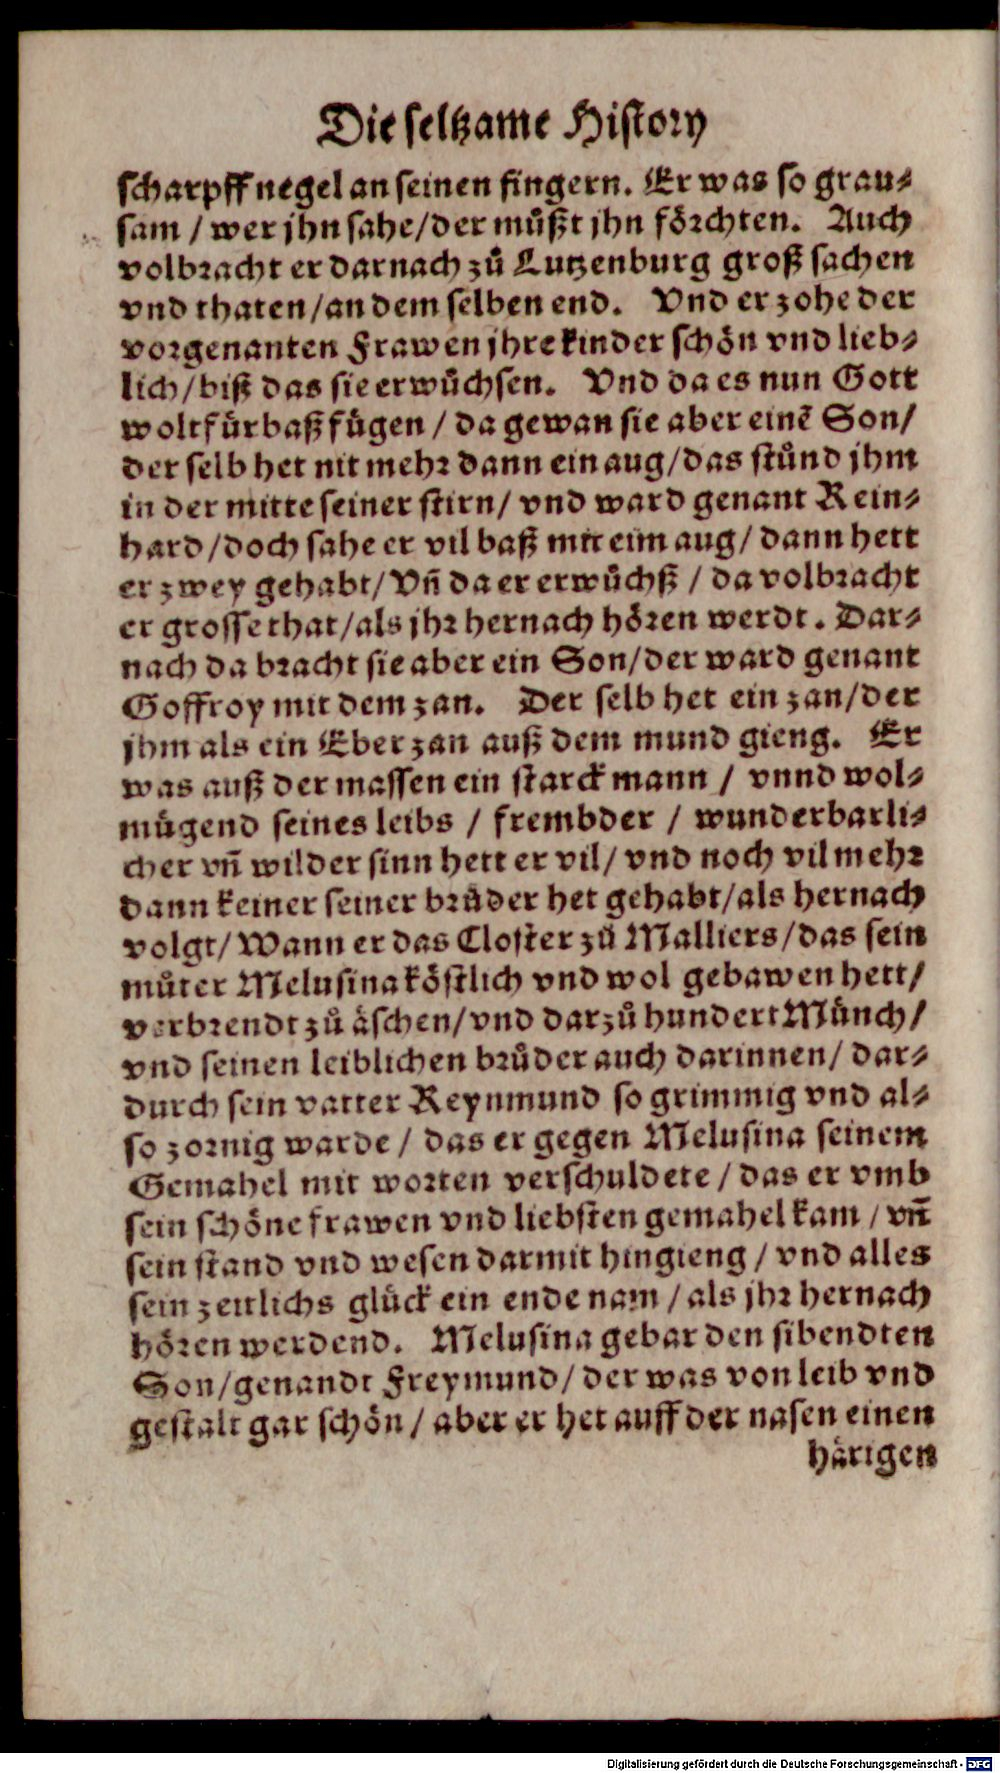 Die seltzame History
scharpff negel an seinen fingern. Er was so grau⸗
sam / wer jhn sahe/der muͤßt jhn foͤrchten. Auch
volbracht er darnach zuͦ Lutzenburg groß sachen
vnd thaten/an dem selben end. Vnd er zohe der
vorgenanten Frawen jhre kinder schoͤn vnd lieb⸗
lich/biß das sie erwuͦchsen. Vnd da es nun Gott
wolt fuͤrbaß fuͤgen / da gewan sie aber einē Son/
der selb het nit mehr dann ein aug/das stuͦnd jhm
in der mitte seiner stirn/ vnd ward genant Rein⸗
hard/doch sahe er vil baß mit eim aug/ dann hett
er zwey gehabt/Vn̄ da er erwuͦchß / da volbracht
er grosse that/als jhr hernach hoͤren werdt. Dar⸗
nach da bracht sie aber ein Son/der ward genant
Goffroy mit dem zan. Der selb het ein zan/der
jhm als ein Eber zan auß dem mund gieng. Er
was auß der massen ein starck mann / vnnd wol⸗
muͤgend seines leibs / frembder / wunderbarli⸗
cher vn̄ wilder sinn hett er vil/ vnd noch vil mehr
dann keiner seiner bruͤder het gehabt/als hernach
volgt/Wann er das Closter zuͦ Malliers/das sein
muͦter Melusina koͤstlich vnd wol gebawen hett/
verbrendt zuͦ aͤschen/vnd darzuͦ hundert Muͤnch/
vnd seinen leiblichen bruͦder auch darinnen/ dar⸗
durch sein vatter Reynmund so grimmig vnd al⸗
so zornig warde / das er gegen Melusina seinem
Gemahel mit worten verschuldete / das er vmb
sein schoͤne frawen vnd liebsten gemahel kam / vn̄
sein stand vnd wesen darmit hingieng / vnd alles
sein zeitlichs gluͤck ein ende nam / als jhr hernach
hoͤren werdend. Melusina gebar den sibendten
Son/genandt Freymund/ der was von leib vnd
gestalt gar schoͤn / aber er het auff der nasen einen
haͤrigen
Digitalisierung gefördert durch die Deutsche Forschungsgemeinschaft - DFG